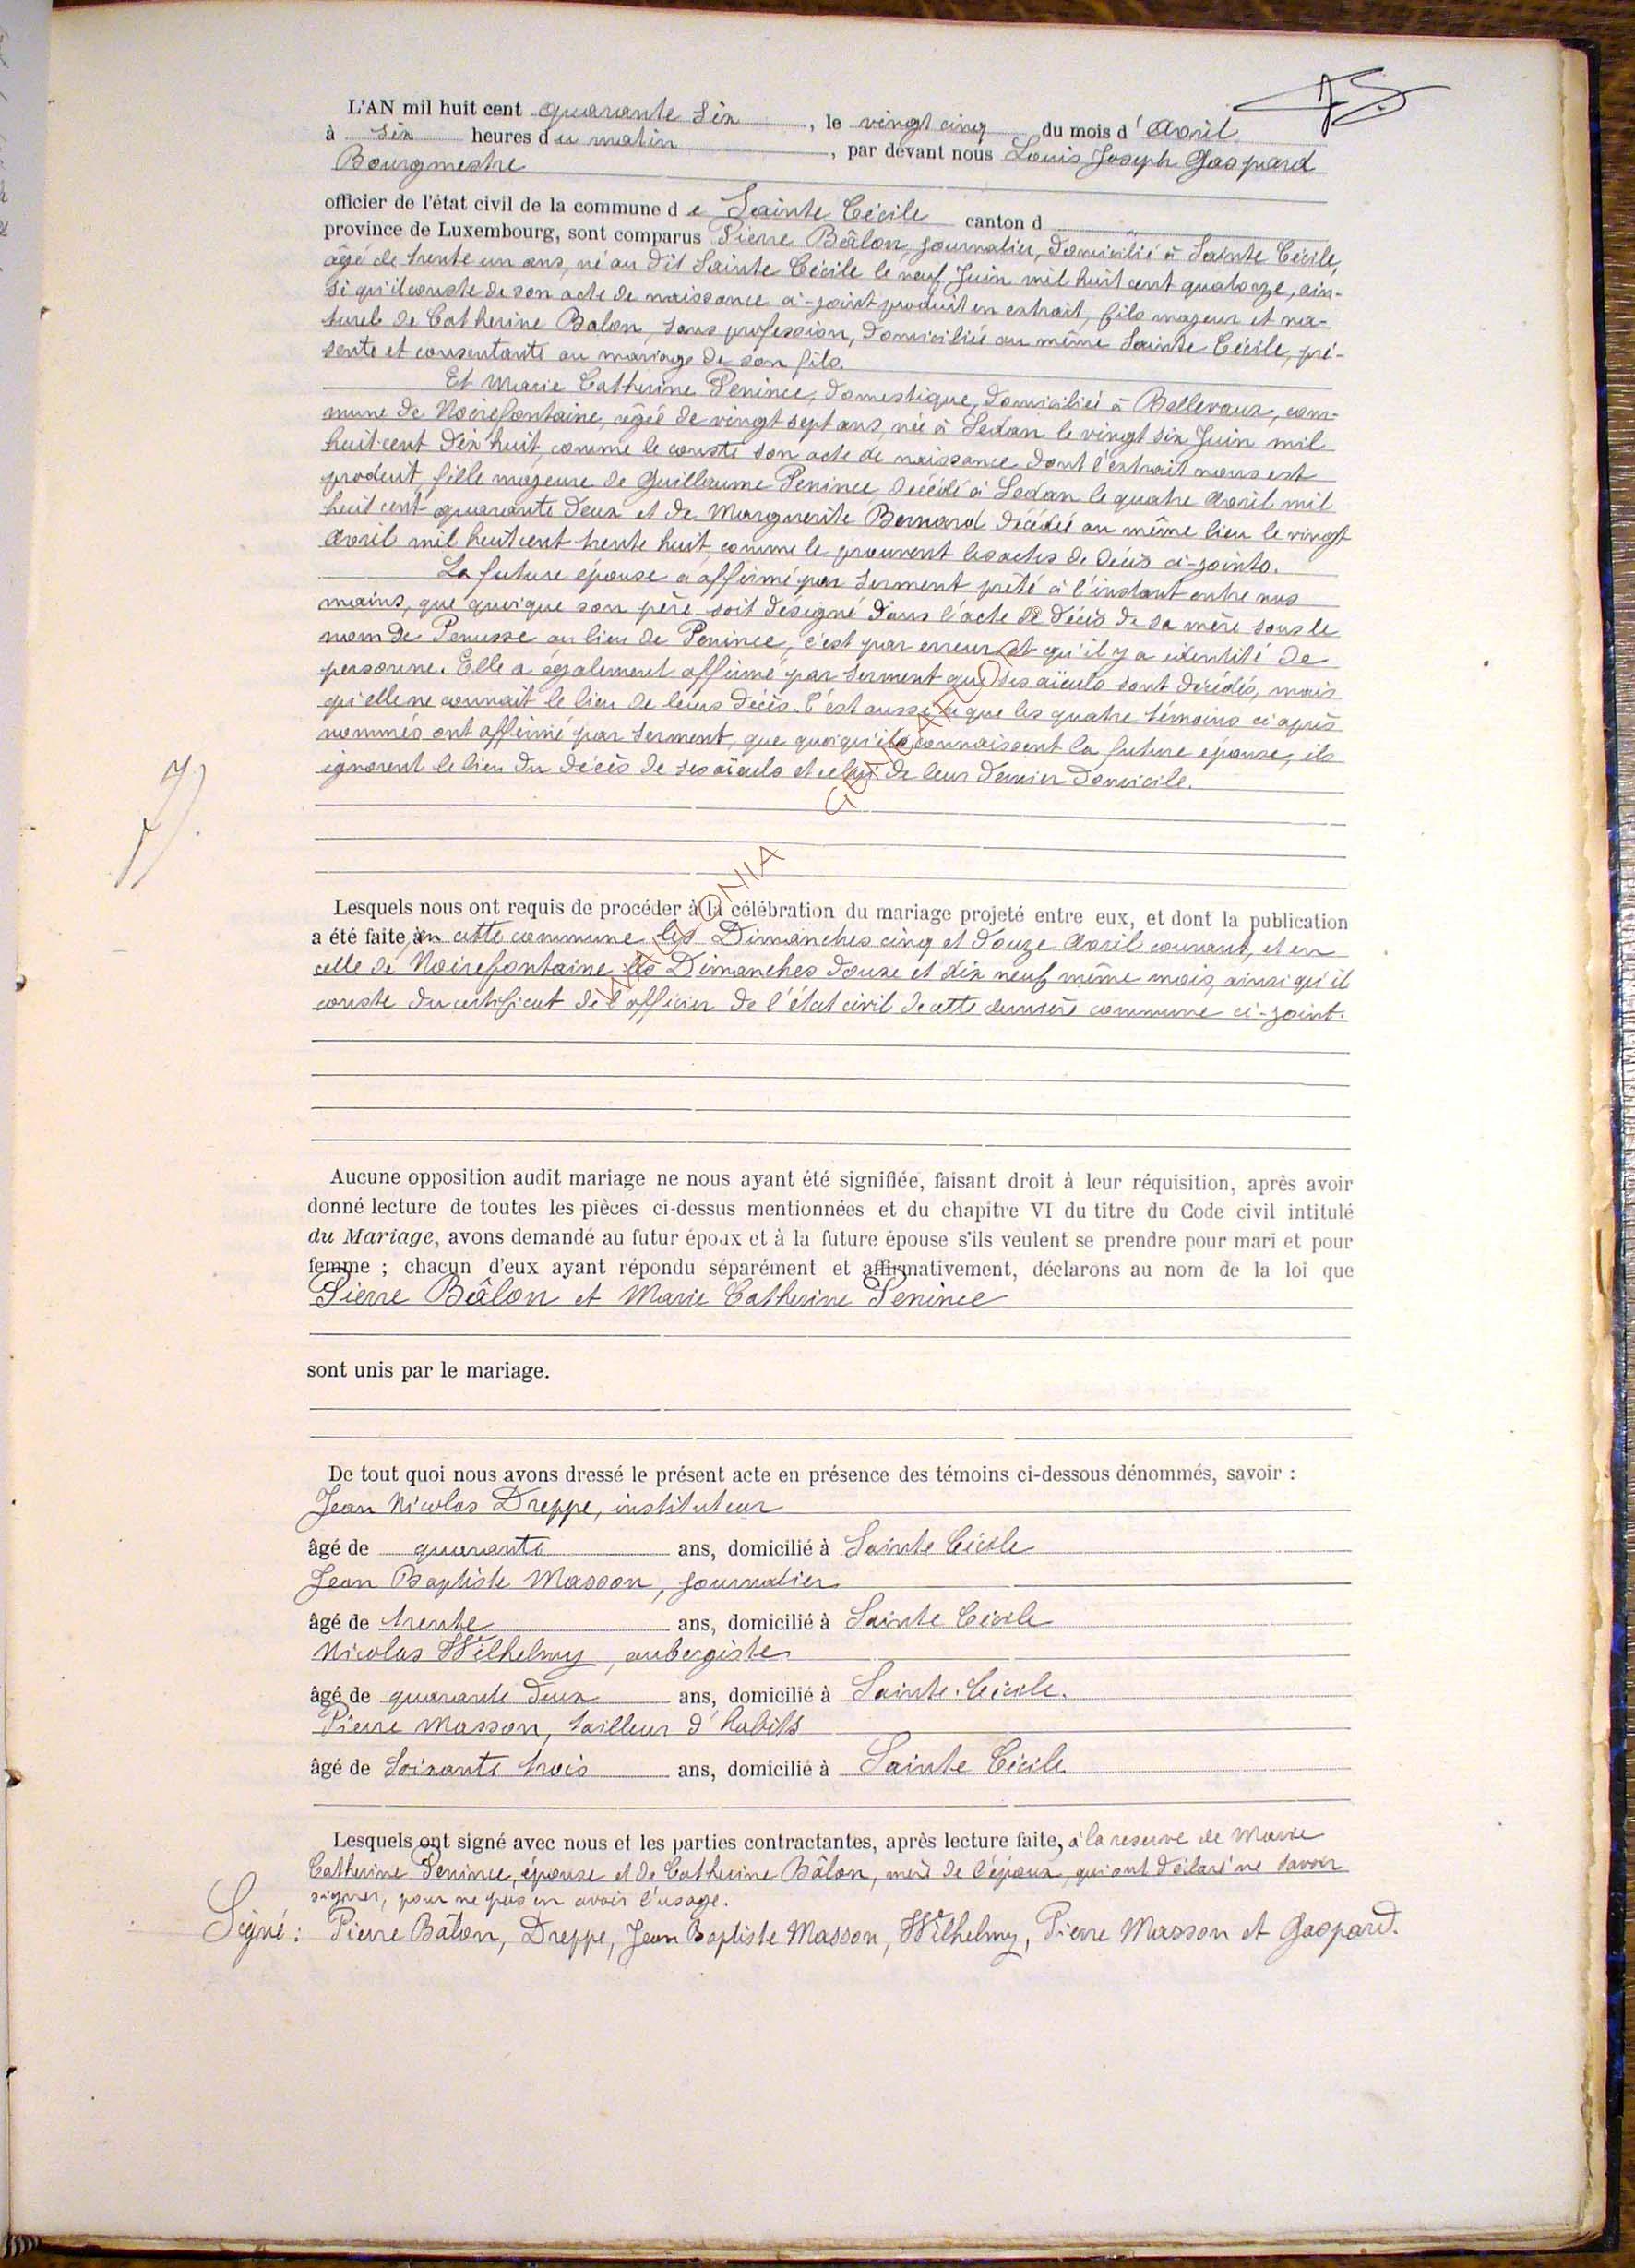 L'AN mil huit cent quarante six, le vingt cinq du mois d'Avril
à six heures du matin, par devant nous Louis Joseph Gaspard
Bourgmestre
officier de l'état civil de la commune de Sainte Cécile canton d
province de Luxembourg, sont comparus Pierre Bâlon, journalier, domicilié à Sainte Cécile,
âgé de trente un ans, né au dit Sainte Cécile le neuf Juin mil huit cent quatorze, ain-
si qu'il conste de son acte de naissance ci-joint produit en extrait, fils majeur et na-
turel de Catherine Balon, sans profession, domiciliée au même Sainte Cécile, pré-
sente et consentante au mariage de son fils.
Et Marie Catherine Penince, domestique, domiciliée à Bellevaux, com-
mune de Noirefontaine, âgée de vingt sept ans, née à Sedan le vingt six Juin mil
huit cent dix huit, comme le conste son acte de naissance dont l'extrait nous est
produit, fille majeure de Guillaume Penince décédé à Sedan le quatre Avril mil
huit cent quarante deux et de Marguerite Bernard décédée au même lieu le vingt
Avril mil huit cent trente huit, comme le prouvent les actes de décès ci-joints.
La future épouse a affirmé par serment prêté à l'instant entre nos
mains, que quoique son père soit désigné dans l'acte de décès de sa mère sous le
nom de Penusse au lieu de Penince, c'est par erreur et qu'il y a identité de
personne. Elle a également affirmé par serment que ses aïeuls sont décédés, mais
qu'elle ne connait le lieu de leurs décès. C'est aussi ce que les quatre témoins ci après
nommés ont affirmé par serment, que quoiqu'ils connaissent la future épouse, ils
ignorent le lieu du décès de ses aïeuls et celui de leur dernier domicile.
7).
Lesquels nous ont requis de procéder à la célébration du mariage projeté entre eux, et dont la publication
a été faite, en cette commune les Dimanches cinq et douze Avril courant, et en
celle de Noirefontaine les Dimanches douze et dix neuf même mois, ainsi qu'il
conste du certificat de l'officier de l'état civil de cette dernière commune ci-joint.
WALLONIA GENEALOGIE
Aucune opposition audit mariage ne nous ayant été signifiée, faisant droit à leur réquisition, après avoir
donné lecture de toutes les pièces ci-dessus mentionnées et du chapitre VI du titre du Code civil intitulé
du Mariage, avons demandé au futur époux et à la future épouse s'ils veulent se prendre pour mari et pour
femme ; chacun d'eux ayant répondu séparément et affirmativement, déclarons au nom de la loi que
Pierre Bâlon et Marie Catherine Penince
sont unis par le mariage.
De tout quoi nous avons dressé le présent acte en présence des témoins ci-dessous dénommés, savoir :
Jean Nicolas Dreppe, instituteur
âgé de quarante ans, domicilié à Sainte Cécile
Jean Baptiste Masson, journalier
âgé de trente ans, domicilié à Sainte Cécile
Nicolas Wilhelmy, aubergiste
âgé de quarante deux ans, domicilié à Sainte-Cécile.
Pierre Masson, tailleur d'habits
âgé de soixante trois ans, domicilié à Sainte Cécile.
Lesquels ont signé avec nous et les parties contractantes, après lecture faite, à la reserve de Marie
Catherine Penince, épouse et de Catherine Bâlon, mère de l'époux, qui ont déclaré ne savoir
signer, pour ne pas en avoir l'usage.
Signé : Pierre Bâlon, Dreppe, Jean Baptiste Masson, Wilhelmy, Pierre Masson et Gaspard.